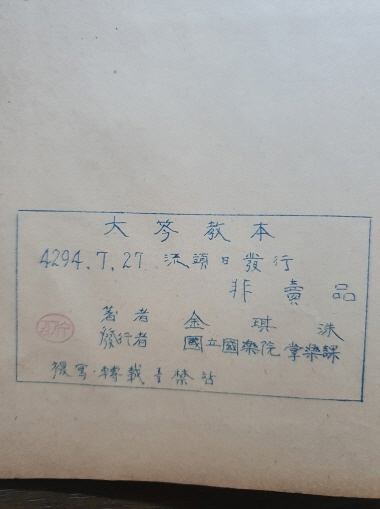 大笒教本
4294.7.27 流頭日發行
非賣品
著者 金琪洙
發行者 國立國樂院 掌樂課
複写·轉載를 禁함